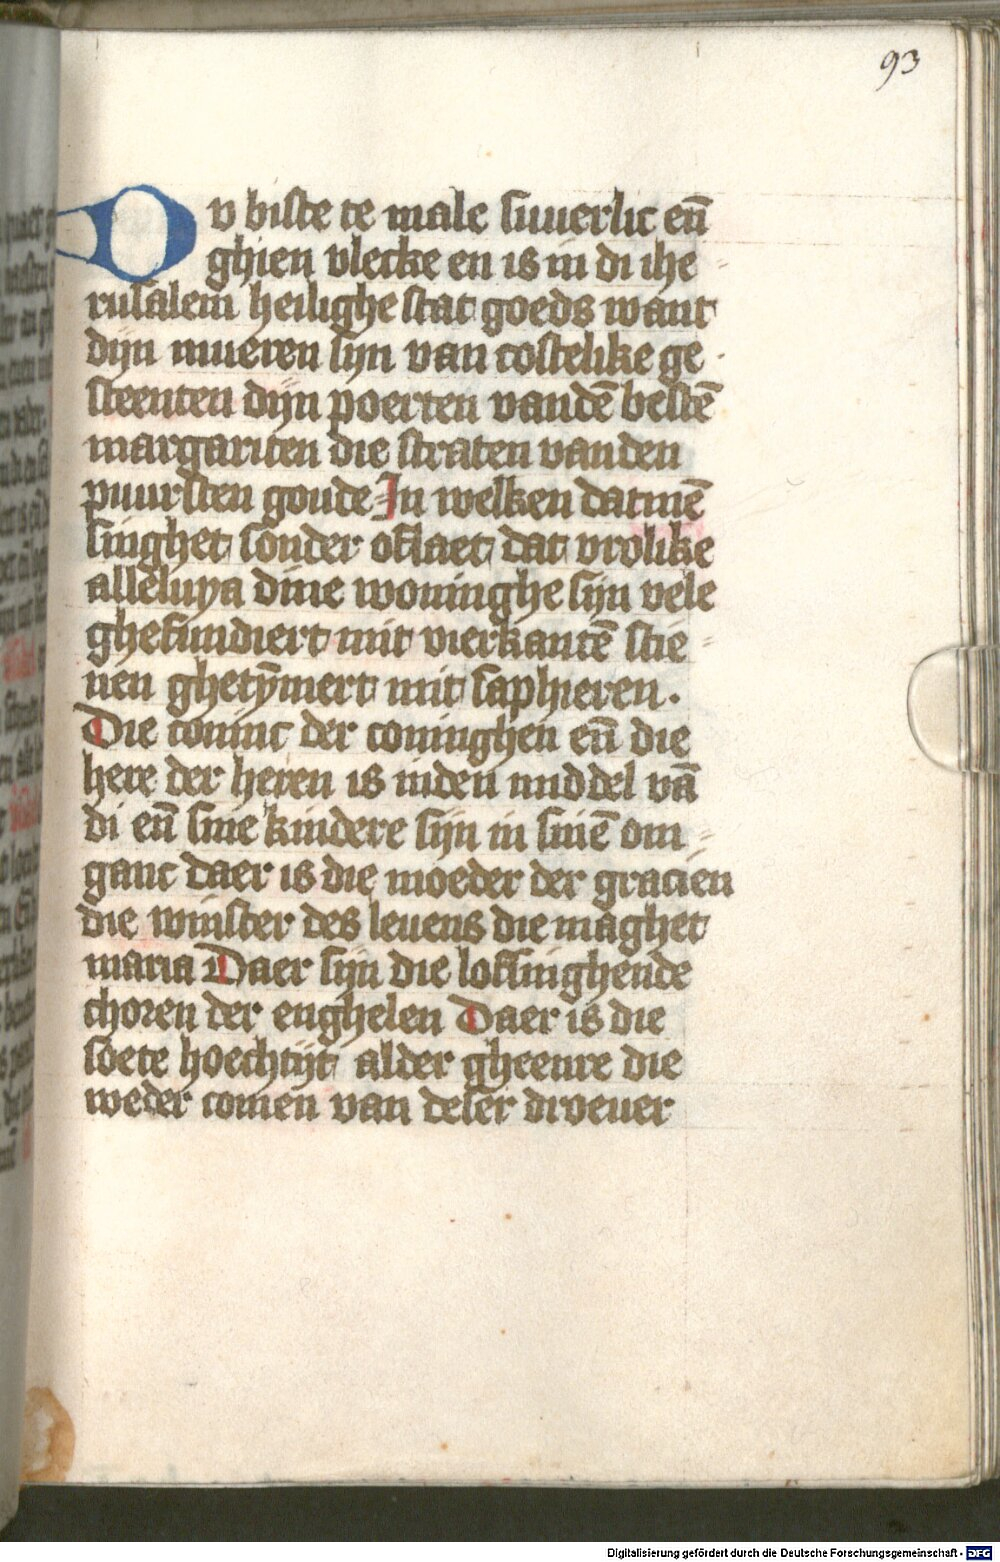 93
Dv biste te male suuerlic en̄
ghien vlecke en is in di ihe⸗
rusalem heilighe stat goeds want
dijn mueren sijn van costelike ge⸗
steenten dijn poerten vandē bestē
margariten die straten vanden
puursten goude In welken datmē
singhet sonder oflaet dat vrolike
alleluya dine woninghe sijn vele
ghefundiert mit vierkantē stie⸗
nen ghetȳmert mit saphieren.
Die coninc der coninghen en̄ die
here der heren is inden middel vā
di en̄ sine kindere sijn in sinē om⸗
ganc daer is die moeder der gracien
die winster des leuens die maghet
maria Daer sijn die lofsinghende
choren der enghelen Daer is die
soete hoechtijt alder gheenre die
weder comen van deser droeuer
Digitalisierung gefördert durch die Deutsche Forschungsgemeinschaft - DFG